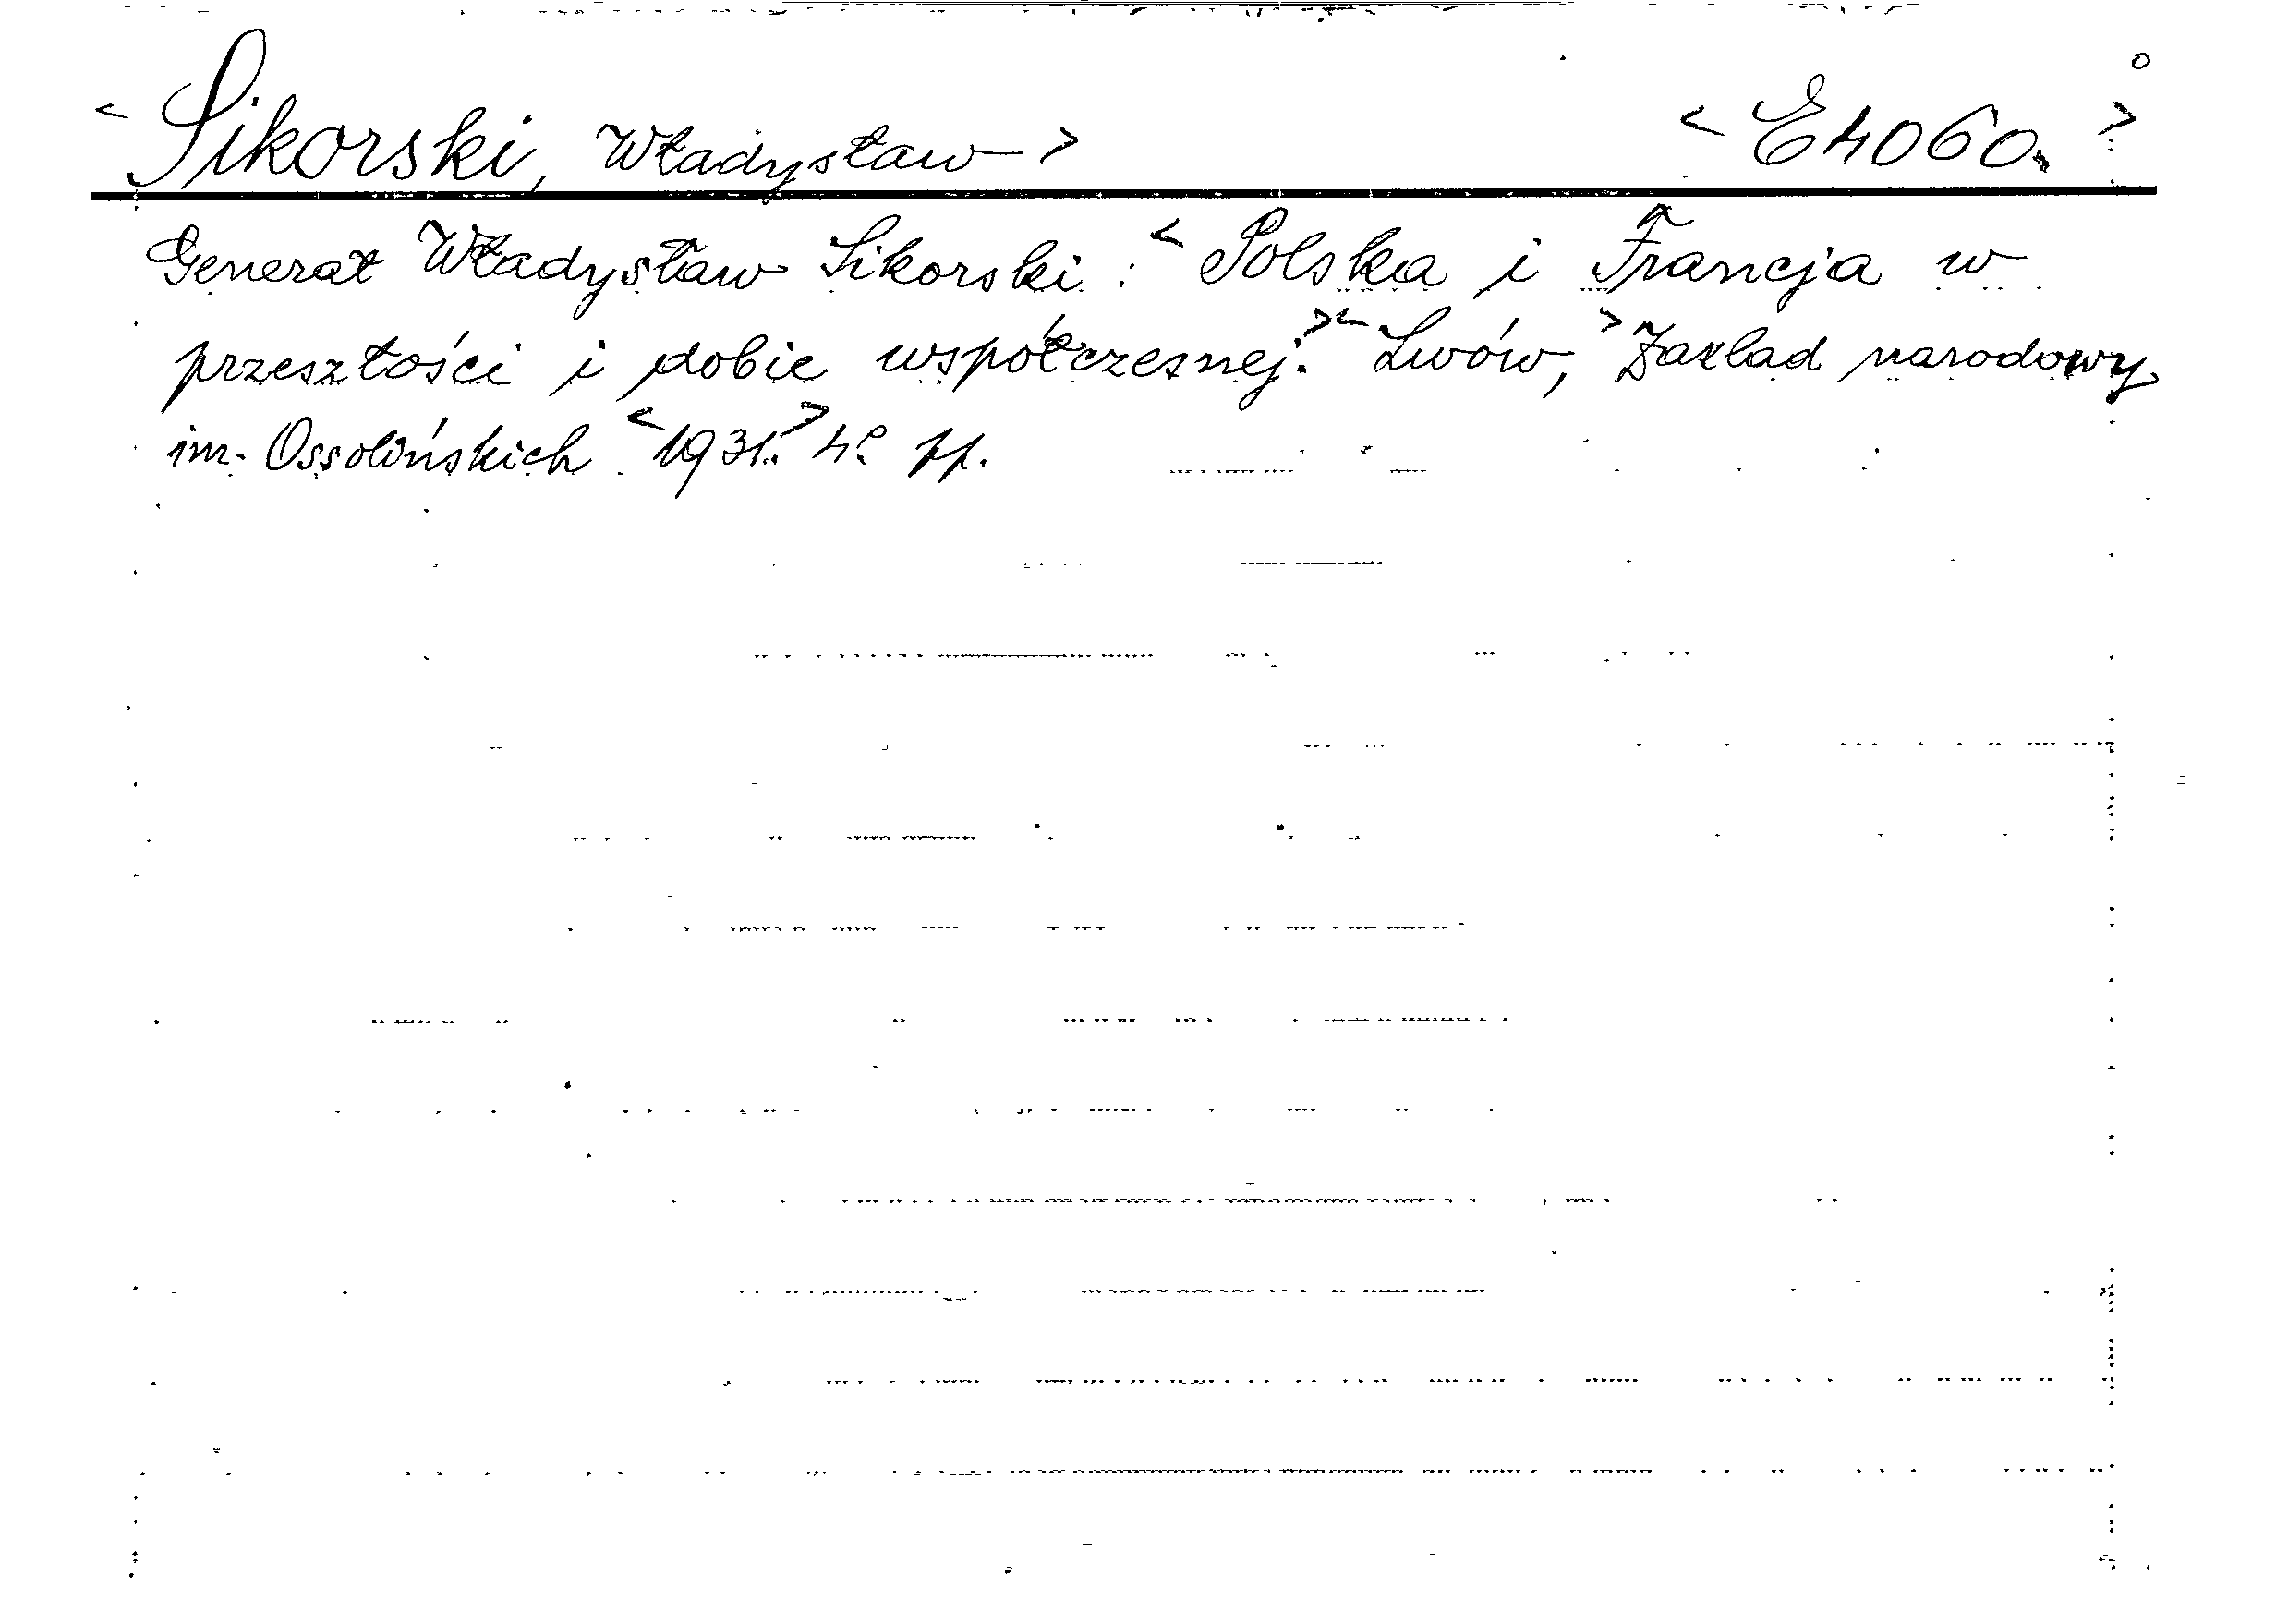 < Sikorski, Władysław > < E4060. >
Generał Władysław Sikorski: < Polska i Francja w
przeszłości i dobie współczesnej. >< Lwów, > Zaklad narodowy
im. Ossolińskich < 1931. > 4º.